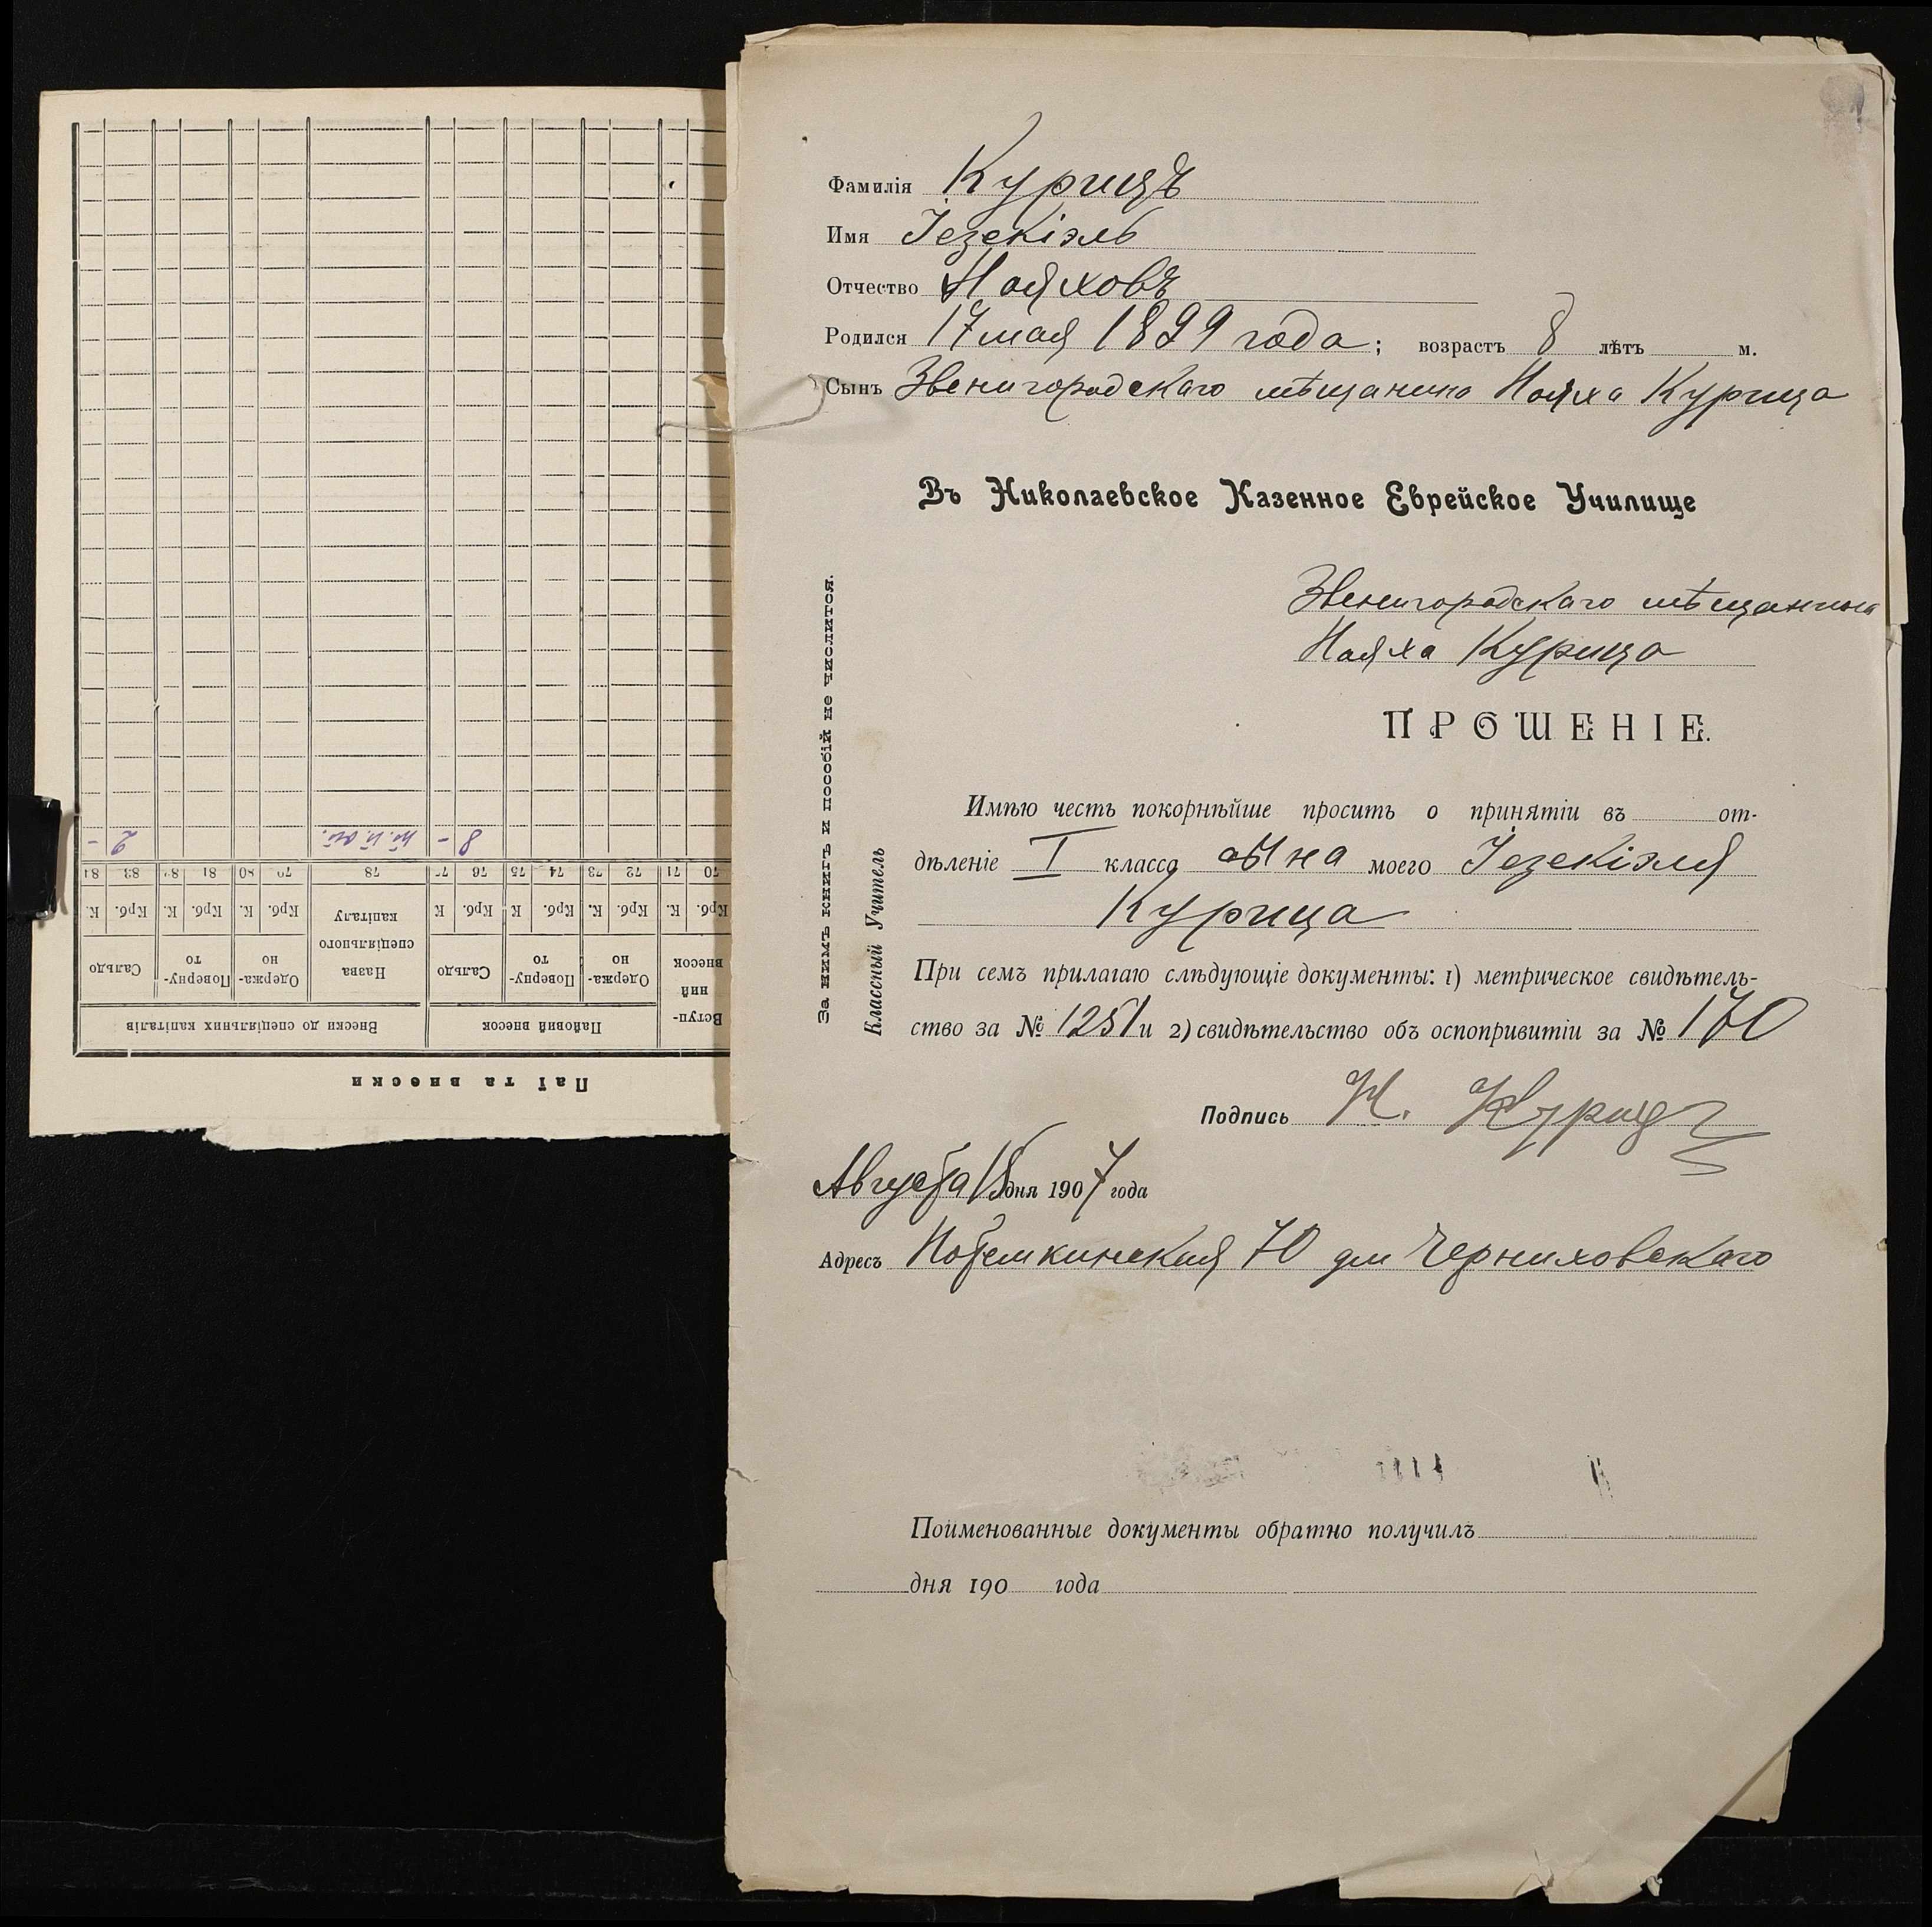 Фамилія Курицъ
Имя Іезекіэль
Отчество Нояховъ
Родился 17 мая 1899 года; возрастъ 8 лѣтъ м.
Сынъ Звенигородскаго мѣщанина Нояха Курица
Въ Николаевское Казенное Еврейское Училище
Звенигородскаго мѣщанина
Нояха Курица
ПРОШЕНІЕ.
Имѣю честь покорнѣйше просить о принятіи въ от-
дѣленіе I класса сына моего Іезекіэля
Курица
При семъ прилагаю слѣдующіе документы: 1) метрическое свидѣтель-
ство за № 1251 и 2) свидѣтельство объ оспопривитіи за № 170
Подпись Н. Курицъ
Августа 15 дня 1907 года
Адресъ Потемкинская 70 дм Черниховскаго
Поименованные документы обратно получилъ
дня 190 года
За нимъ книгъ и пособій не числится.
Классный Учитель
Паї та внески
Вступ-
ний
внесок
Пайовий внесок
Внески до спеціяльних капіталів
Одержа-
но
Поверну-
то
Сальдо
Назва
спеціяльного
капіталу
Одержа-
но
Поверну-
то
Сальдо
Крб. К. Крб. К. Крб. К Крб. К Крб. К. Крб. К. Крб. К.
70 71 72 73 74 75 76 77 78 79 80 81 82 83 84
8 -
2 -